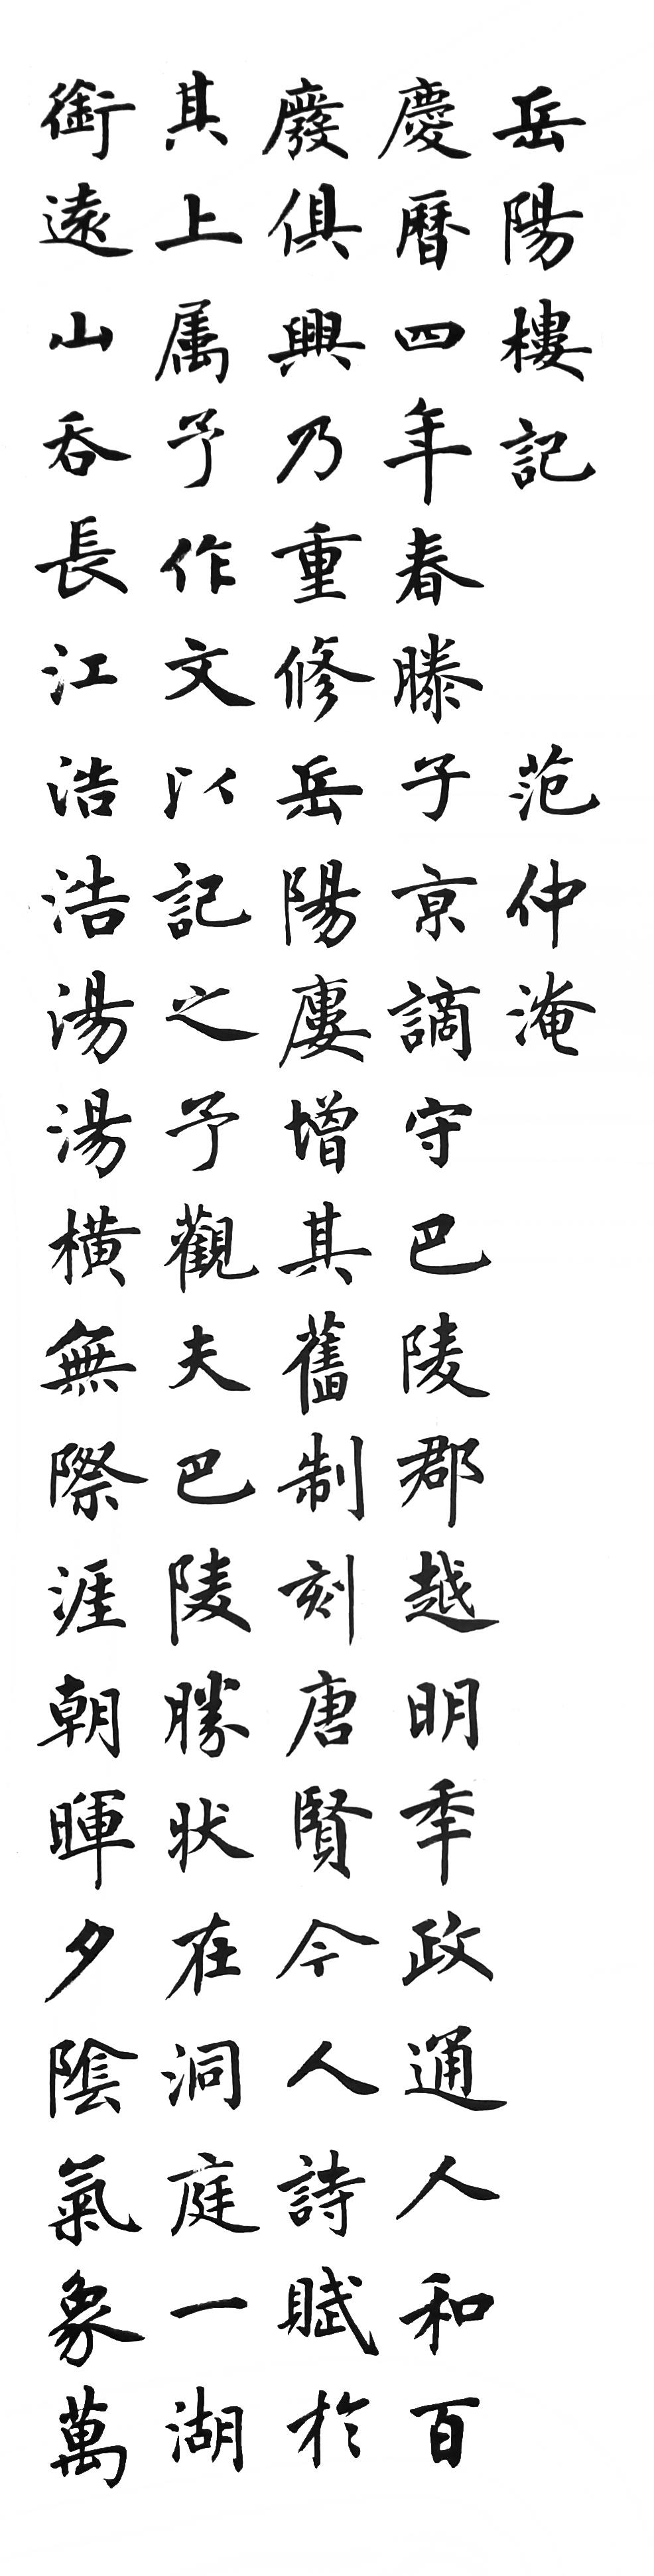 岳陽樓記 范仲淹
慶曆四年春滕子京謫守巴陵郡越明季政通人和百
廢俱興乃重修岳陽廔增其舊制刻唐賢今人詩賦於
其上属予作文以記之予觀夫巴陵勝狀在洞庭一湖
銜遠山吞長江浩浩湯湯橫無際涯朝暉夕陰氣象萬